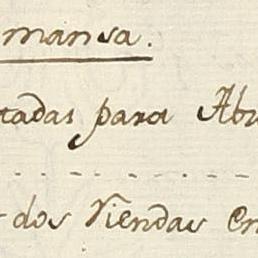 mansa.
tadas para Abr
dos Viendas en